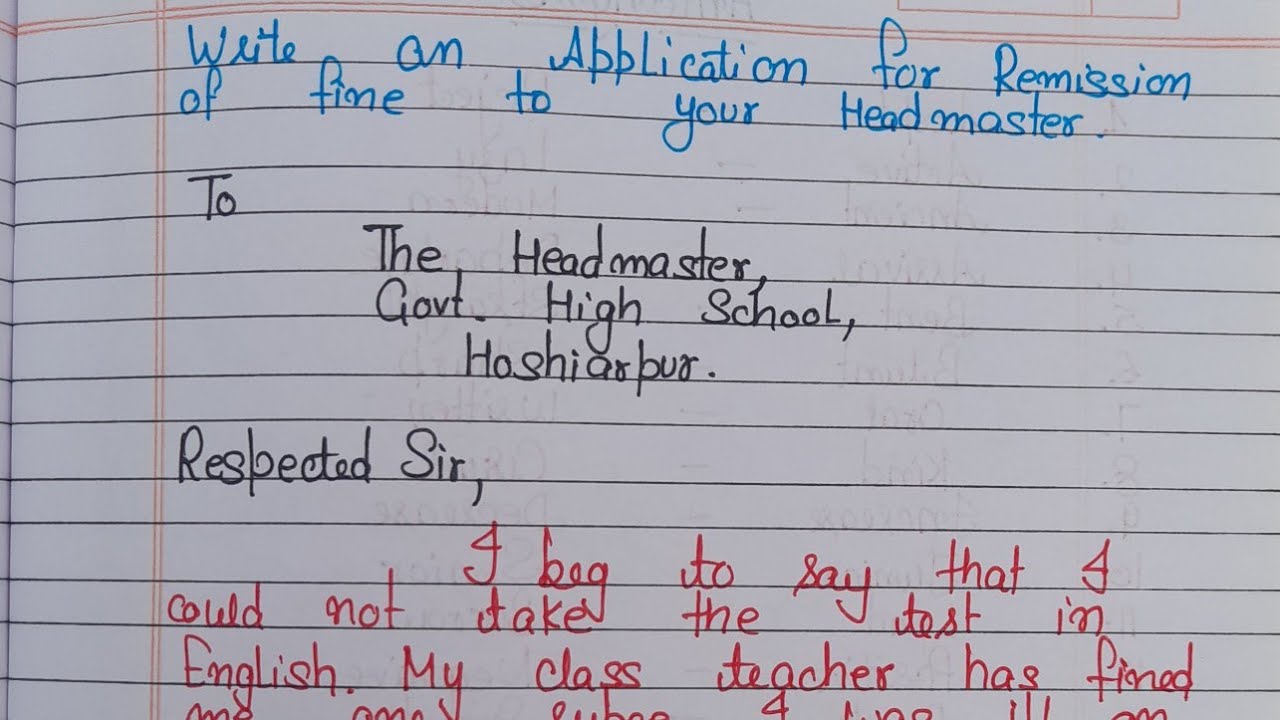 Write an Application for Remission
of fine to your Headmaster.
To
The, Headmaster,
Govt. High School,
Hoshiarpur.
Respected Sir,
I beg to say that I
could not take the test in
English. My class teacher has fined
me one rupee I ill on